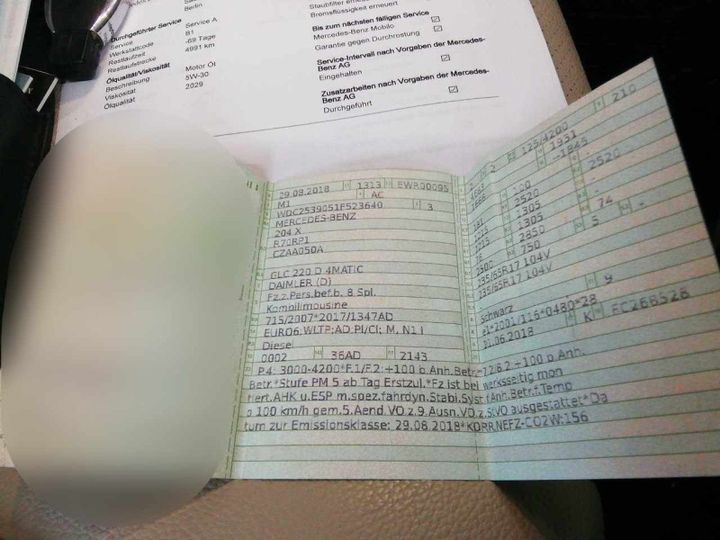 Berlin
Durchgeführter Service Service A
Service B1
Werkstattcode -69 Tage
Restlaufzeit 4991 km
Restlaufstrecke
Ölqualität/Viskosität
Beschreibung Motor Öl
Viskosität 5W-30
Ölqualität 2029
Staubfilter
Bremsflüssigkeit erneuert
Bis zum nächsten fälligen Service
Mercedes-Benz Mobilo
Garantie gegen Durchrostung
Service-Intervall nach Vorgaben der Mercedes-
Benz AG
Eingehalten
Zusatzarbeiten nach Vorgaben der Mercedes-
Benz AG
Durchgeführt
29.08.2018 1313 EWR00095
M1 AC
WDC2539051F523640 3
MERCEDES-BENZ
204 X
R70RP1
CZAA050A
GLC 220 D 4MATIC
DAIMLER (D)
Fz.z.Pers.bef.b. 8 Spl.
Kombilimousine
715/2007*2017/1347AD
EURO6;WLTP;AD;PI/CI; M, N1 I
Diesel
0002 36AD 2143
2 125/4200 210
1931
100 2520
191 2520
1215 1305
1215 1305 74
2850 5 -
750
235/65R17 104V
235/65R17 104V
schwarz 9
e1*2001/116*0480*28
K FC268528
P.4: 3000-4200*F.1/F.2: +100 b.Anh.Betr.*7.2/8.2:+100 b.Anh.
Betr.*Stufe PM 5 ab Tag Erstzul.*Fz ist bei werksseitig mon
tiert.AHK u.ESP m.spez.fahrdyn.Stabi.Syst.f.Anh.Betr.f.Temp
o 100 km/h gem.5.Aend.VO z.9.Ausn.VO z.StVO ausgestattet*Da
tum zur Emissionsklasse: 29.08.2018*KORR.NEFZ-CO2W:156